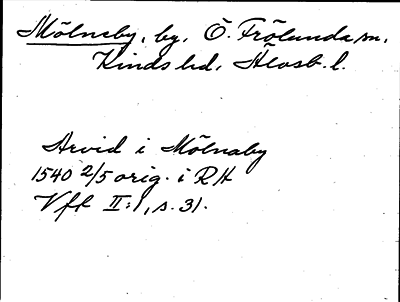 Mölneby, by, Ö. Frölunda sn,
Kinds hd, Älvsb. l.
Arvid i Mölnaby
1540 2/5 orig. i RA
Vff II:1, s. 31.